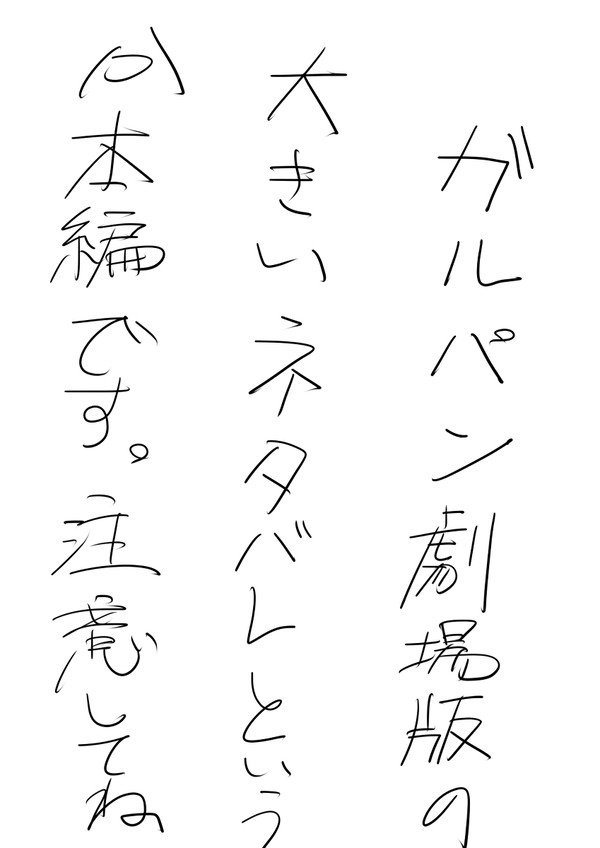 ガルパン劇場版の
大きいネタバレという
か本編です。注意してね